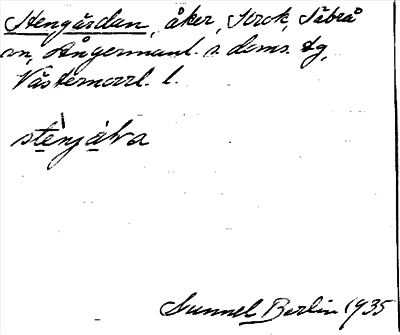 Stengärdan, åker, Krok, Säbrå
sn, Ångermanl. s. doms. tg,
Västernorrl. l.
stènjáḷa
Gunnel Berlin 1935